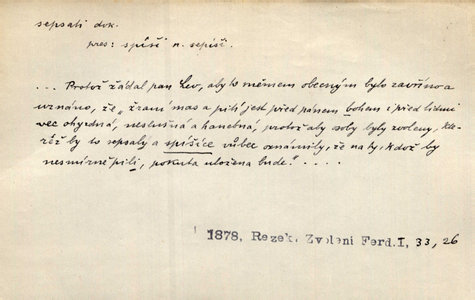 sepsati dok.
pres: spíší n. sepíší.
... Protož žádal pan Lev, aby to sněmem obecným bylo zavříno a
uznáno, že „žraní mas a pití jest před pánem bohem i před lidmi
vec ohyzdná, neslušná a hanebná, protož aby osoby byly zvoleny, kte-
réž by to sepsaly a spíšíce vůbec oznámily, že na ty, kdož by
nesmírně pili, pokuta uložena bude." ....
1878, Rezek, Zvolení Ferd. I, 33, 26